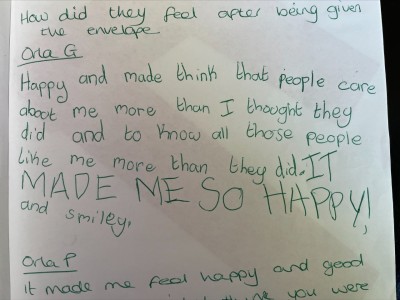 How did they feel after being given
the envelope
Orla G
Happy and made think that people care
about me more than I thought they
did and to know all those people
like me more than they did. IT
MADE ME SO HAPPY!
and smiley,
Orla P
it made me feel happy and good
you were